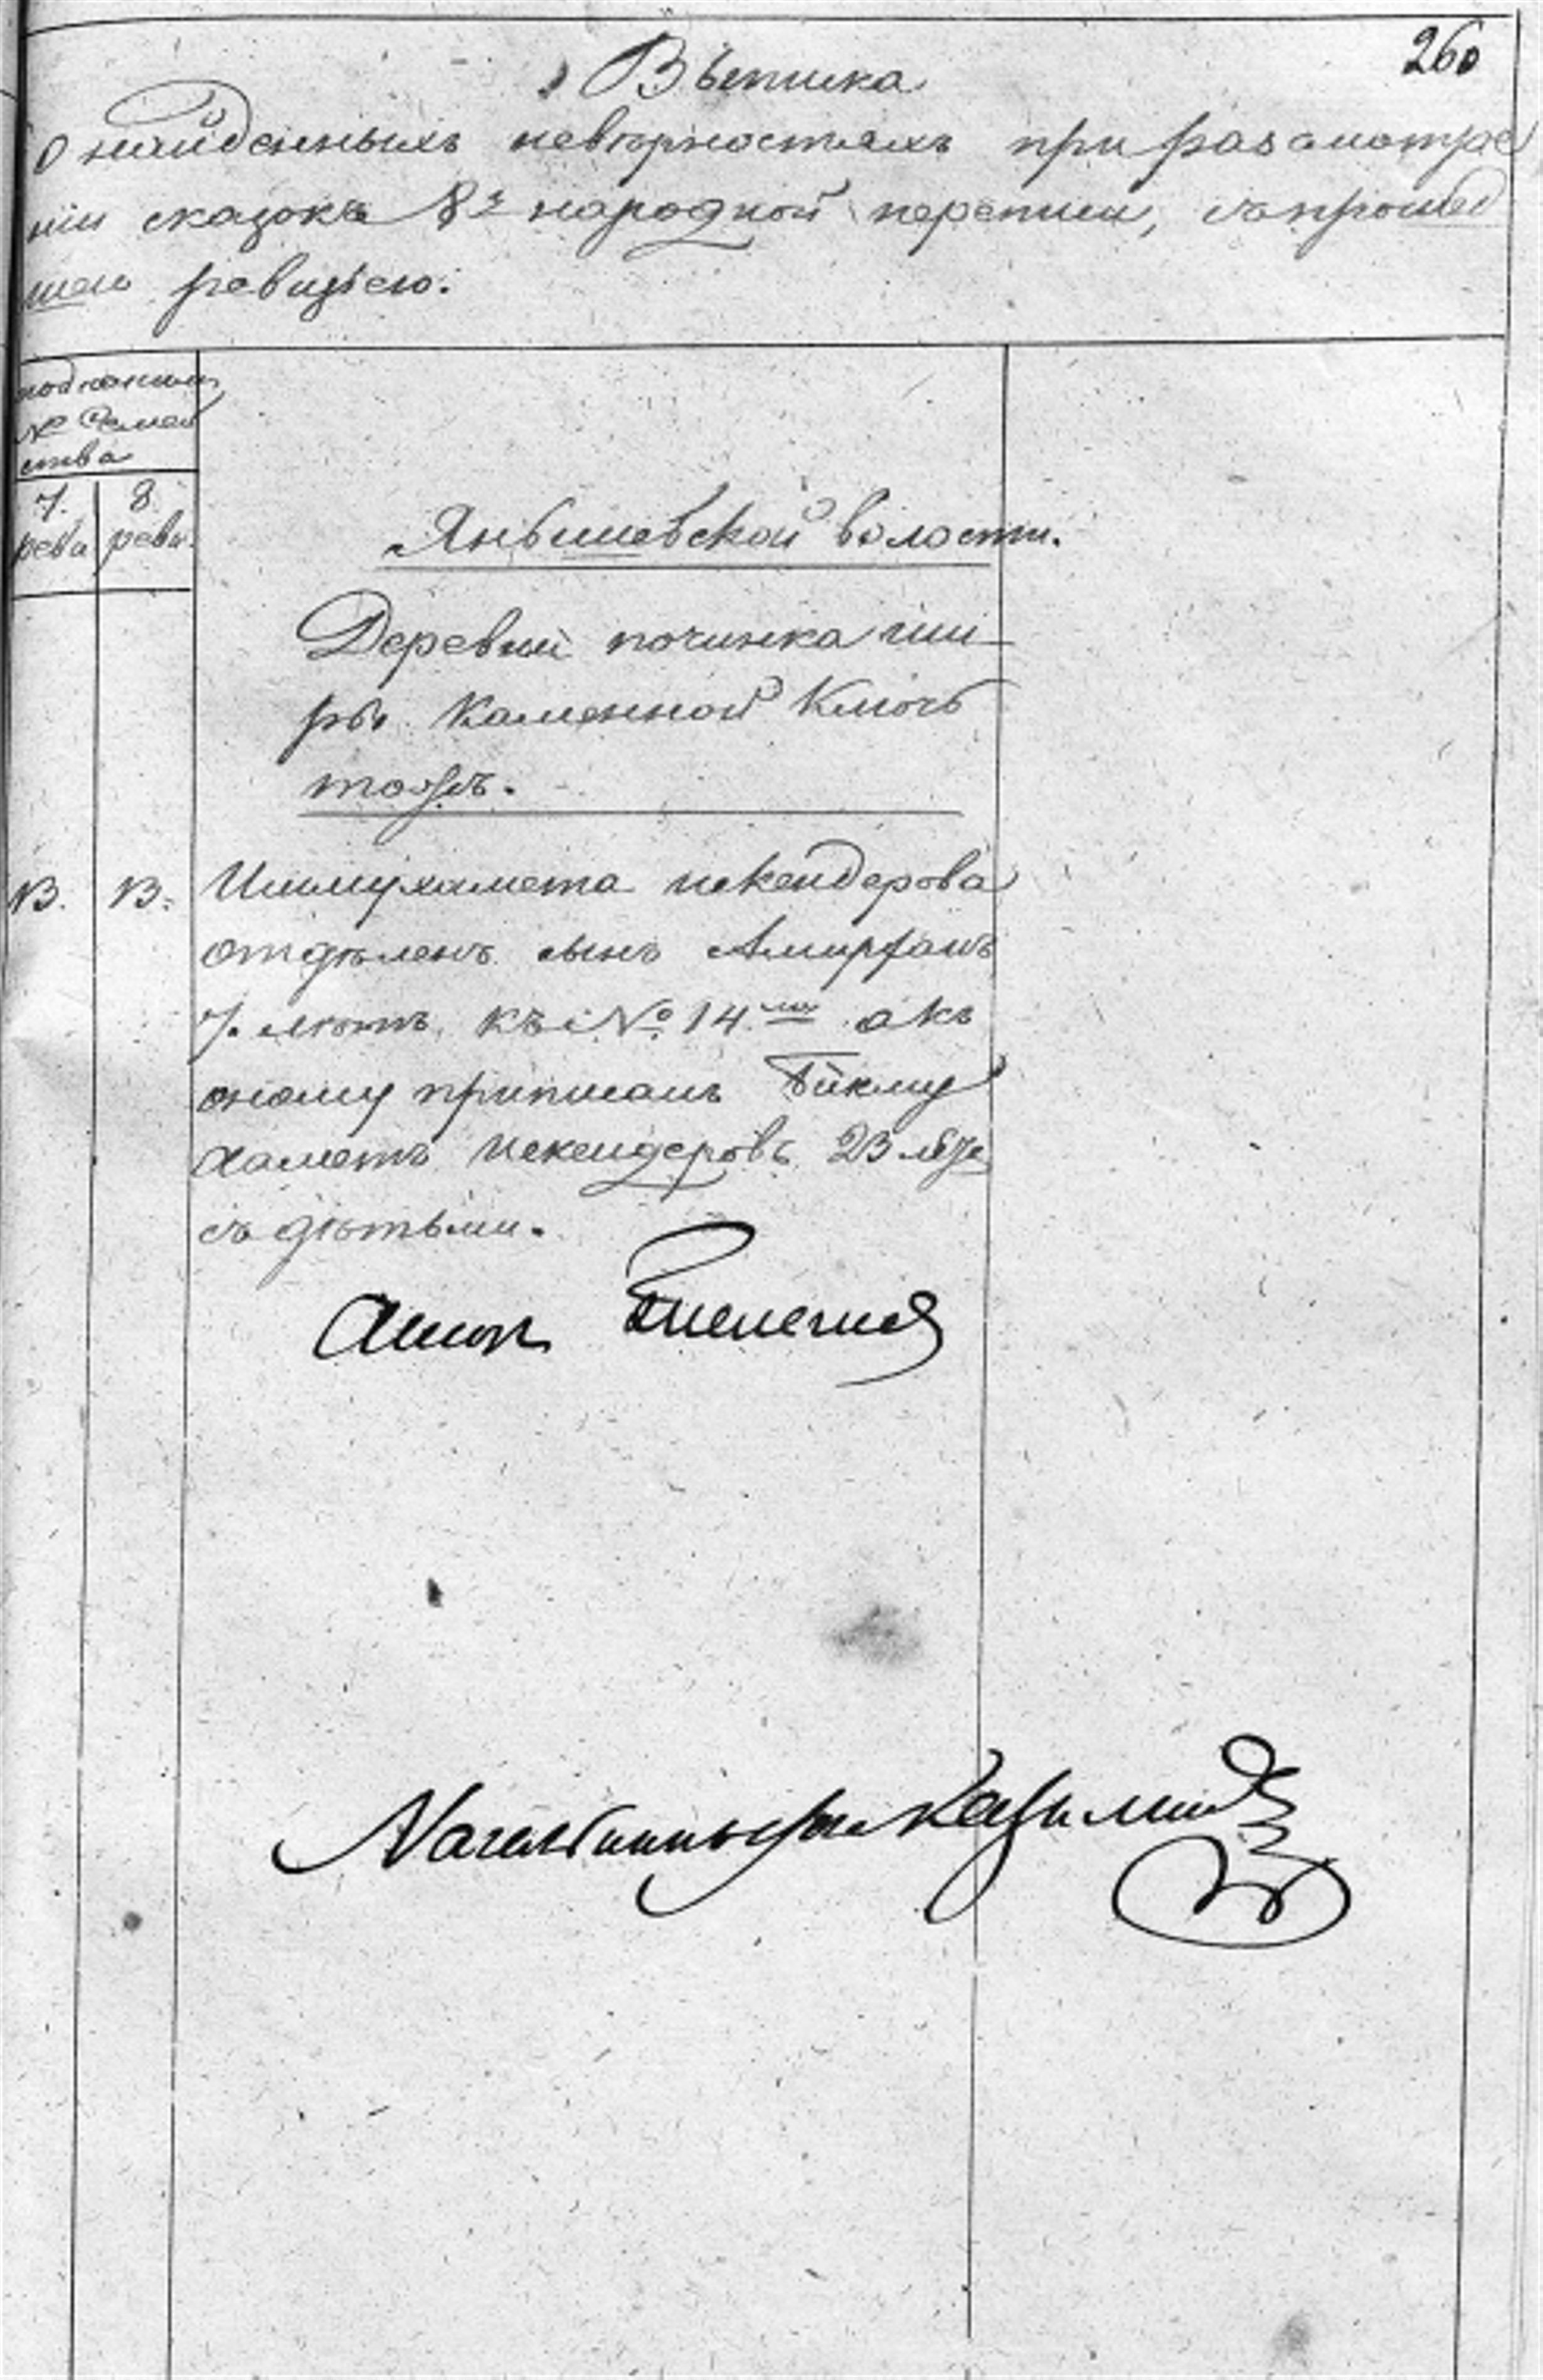 260
Выписка
О найденныхъ неверностяхъ при разсмотре
нiи сказокъ 8й народной переписи, съ прошед
шею ревизiею.
подлинны
№ Семей
ства
7. 8.
реви реви.
Янышевской волости.
Деревни починка ши
ры Каменной Ключь
тожъ.
13. 13. Ишмухамета искендерова
отделенъ сынъ Амирханъ
7. летъ, къ № 14му а къ
оному приписанъ Бикму
хаметъ искендеровъ 23 лѣтъ
съ детьми.